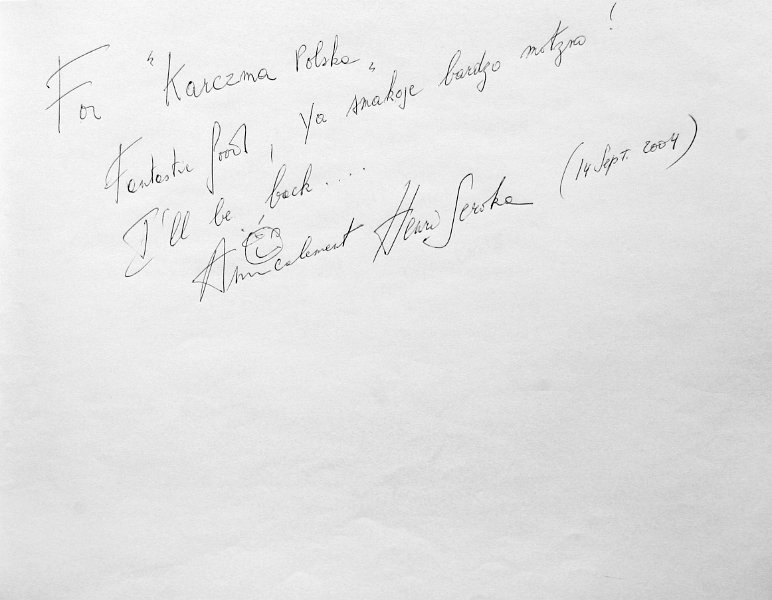 For "Karczma Polska"
Fantastic food, Ya smakoje bardzo motzno!
I'll be back....
Amicalement Henri Seroka (14 Sept. 2004)